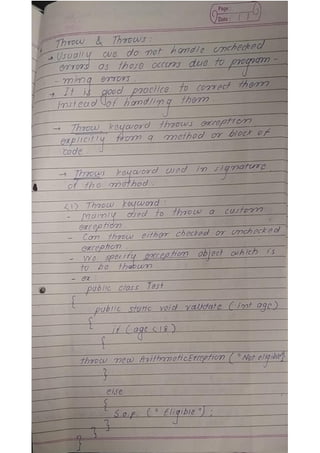 Page:
Date:
Throw & Throws:
→ Usually we do not handle unchecked
errors as those occurs due to program-
-ming errors.
→ It is good practice to correct them
instead of handling them.
→ Throw keyword throws exception
explicitly from a method or block of
code.
→ Throws keyword used in signature
of the method.
(1) Throw keyword:
- Mainly used to throw a custom
exception.
- Can throw either checked or unchecked
exception.
- We specify exception object which is
to be thrown
- ex:
public class Test
{
public static void validate (int age)
{
if (age <18)
{
throw new ArithmaticException ("Not eligible
}
else
{
S.o.p. (" Eligible");
}
}
}